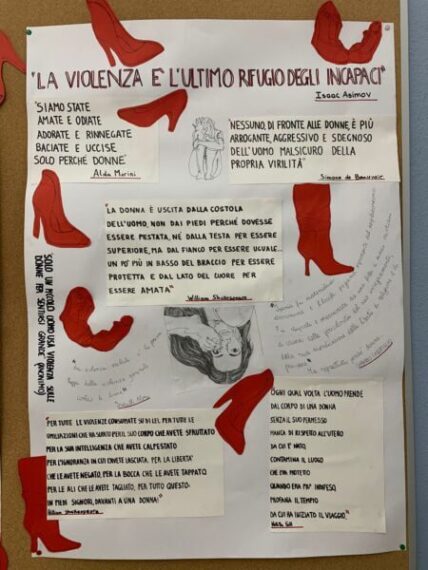 "LA VIOLENZA E' L'ULTIMO RIFUGIO DEGLI INCAPACI"
Isaac Asimov
"SIAMO STATE
AMATE E ODIATE
ADORATE E RINNEGATE
BACIATE E UCCISE
SOLO PERCHÉ DONNE"
Alda Merini
"NESSUNO, DI FRONTE ALLE DONNE, È PIÙ
ARROGANTE, AGGRESSIVO E SDEGNOSO
DELL'UOMO MALSICURO DELLA
PROPRIA VIRILITÀ"
Simone de Beauvoir
"LA DONNA È USCITA DALLA COSTOLA
DELL'UOMO, NON DAI PIEDI PERCHÉ DOVESSE
ESSERE PESTATA, NÉ DALLA TESTA PER ESSERE
SUPERIORE, MA DAL FIANCO PER ESSERE UGUALE...
UN PO' PIÙ IN BASSO DEL BRACCIO PER ESSERE
PROTETTA E DAL LATO DEL CUORE PER
ESSERE AMATA"
William Shakespeare
SOLO UN PICCOLO UOMO USA VIOLENZA SULLE
DONNE PER SENTIRSI GRANDE (ANONIMO)
"PER TUTTE LE VIOLENZE CONSUMATE SU DI LEI, PER TUTTE LE
UMILIAZIONI CHE HA SUBITO PER IL SUO CORPO CHE AVETE SFRUTTATO
PER LA SUA INTELLIGENZA CHE AVETE CALPESTATO
PER L'IGNORANZA IN CUI L'AVETE LASCIATA, PER LA LIBERTÀ
CHE LE AVETE NEGATO, PER LA BOCCA CHE LE AVETE TAPPATO
PER LE ALI CHE LE AVETE TAGLIATO, PER TUTTO QUESTO:
IN PIEDI SIGNORI, DAVANTI A UNA DONNA!"
William Shakespeare
OGNI QUAL VOLTA L'UOMO PRENDE
DAL CORPO DI UNA DONNA
SENZA IL SUO PERMESSO
MANCA DI RISPETTO ALL'UTERO
DA CUI È NATO,
CONTAMINA IL LUOGO
CHE ERA PROTETTO
QUANDO ERA PIU' INDIFESO,
PROFANA IL TEMPIO
DA CUI HA INIZIATO IL VIAGGIO."